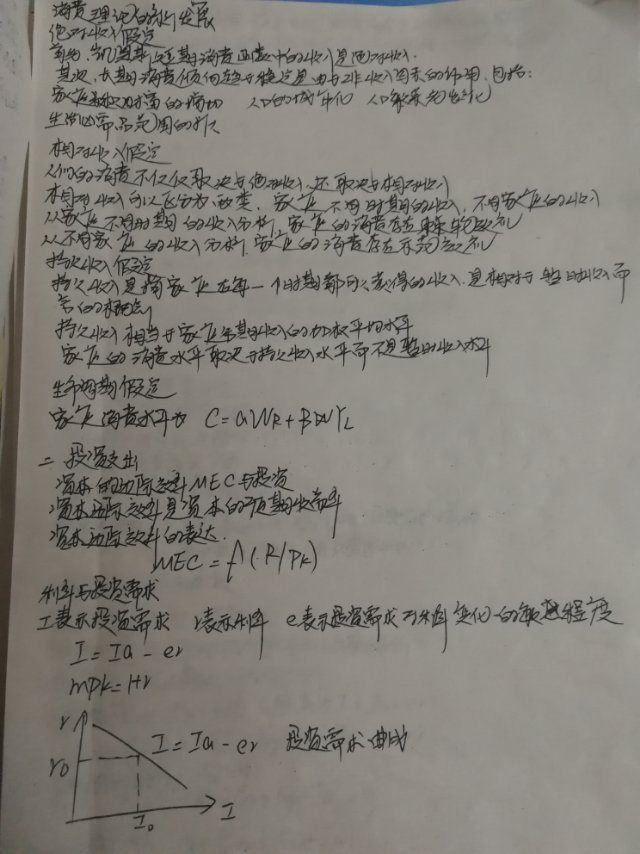 消费理论的新发展
绝对收入假定
首先，凯恩斯短期消费函数中的收入是绝对收入.
其次，长期消费倾向趋于稳定是由于非收入因素的作用，包括：
家庭积累财富的 人口的城市化 人口 变化
生活必需品范围的扩大
相对收入假定
人们的消费不仅仅取决于绝对收入，还取决于相对收入
相对收入可以区分为两类，家庭不同时期的收入，不同家庭的收入
从家庭不同时期的收入分析，家庭的消费存在棘轮效应
从不同家庭的收入分析，家庭的消费存在示范效应
持久收入假定
持久收入是指家庭在每一个时期都可以获得的收入，是相对于暂时收入而
言的概念
持久收入相当于家庭各期收入的加权平均水平
家庭的消费水平取决于持久收入水平而不是暂时收入水平
生命周期假定
家庭消费水平为 C=aWR+BWYL
二 投资支出
资本的边际效率MEC与投资
资本边际效率是资本的预期收益率
资本边际效率的表达.
MEC=f(R/Pk)
利率与投资需求
I表示投资需求 r表示利率 e表示投资需求对利率变化的敏感程度
I=Ia-er
mpk=1+r
r
r0
I=Ia-er 投资需求曲线
I0
I